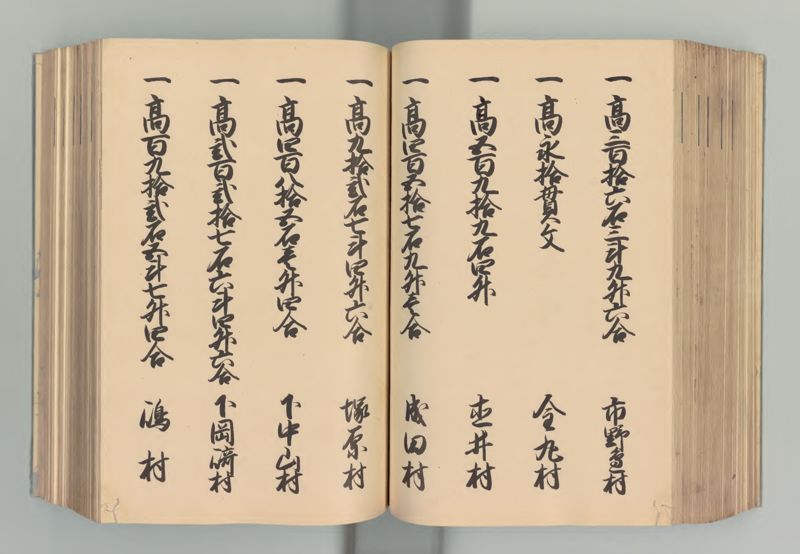 一高三百拾六石三斗九升六合 市野邊村
一高永拾貫文 金丸村
一高五百九拾九石四升 壱井村
一高四百五拾七石九升壱合 成田村
一高九拾弐石七斗四升六合 塚原村
一高四百八拾五石壱升四合 下中山村
一高弐百弐拾七石六斗四升六合 下岡﨑村
一高百九拾弐石五斗七升四合 嶋村